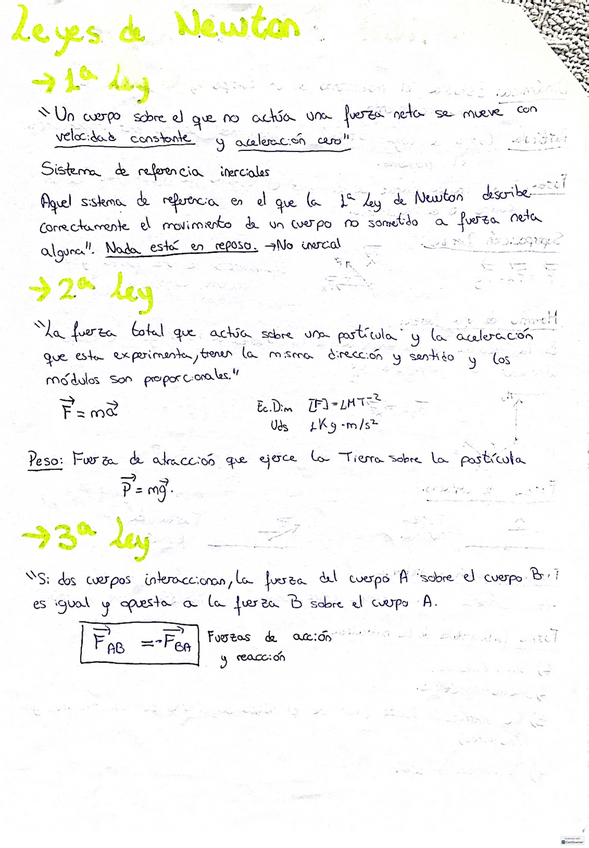 Leyes de Newton
→ 1ª Ley
"Un cuerpo sobre el que no actúa una fuerza neta se mueve con
velocidad constante y aceleración cero"
Sistema de referencia inerciales
Aquel sistema de referencia en el que la 1ª Ley de Newton describe
correctamente el movimiento de un cuerpo no sometido a fuerza neta
alguna". Nada está en reposo. → No inercal
→ 2ª Ley
"La fuerza total que actúa sobre una partícula y la aceleración
que esta experimenta, tienen la misma dirección y sentido y los
módulos son proporcionales."
F⃗ = ma⃗
Ec. Dim [F] = LMT⁻²
Uds 1Kg·m/s²
Peso: Fuerza de atracción que ejerce la Tierra sobre la partícula
P⃗ = mg⃗.
→ 3ª Ley
"Si dos cuerpos interaccionan, la fuerza del cuerpo A sobre el cuerpo B,
es igual y opuesta a la fuerza B sobre el cuerpo A.
F⃗AB = -F⃗BA Fuerzas de acción
y reacción